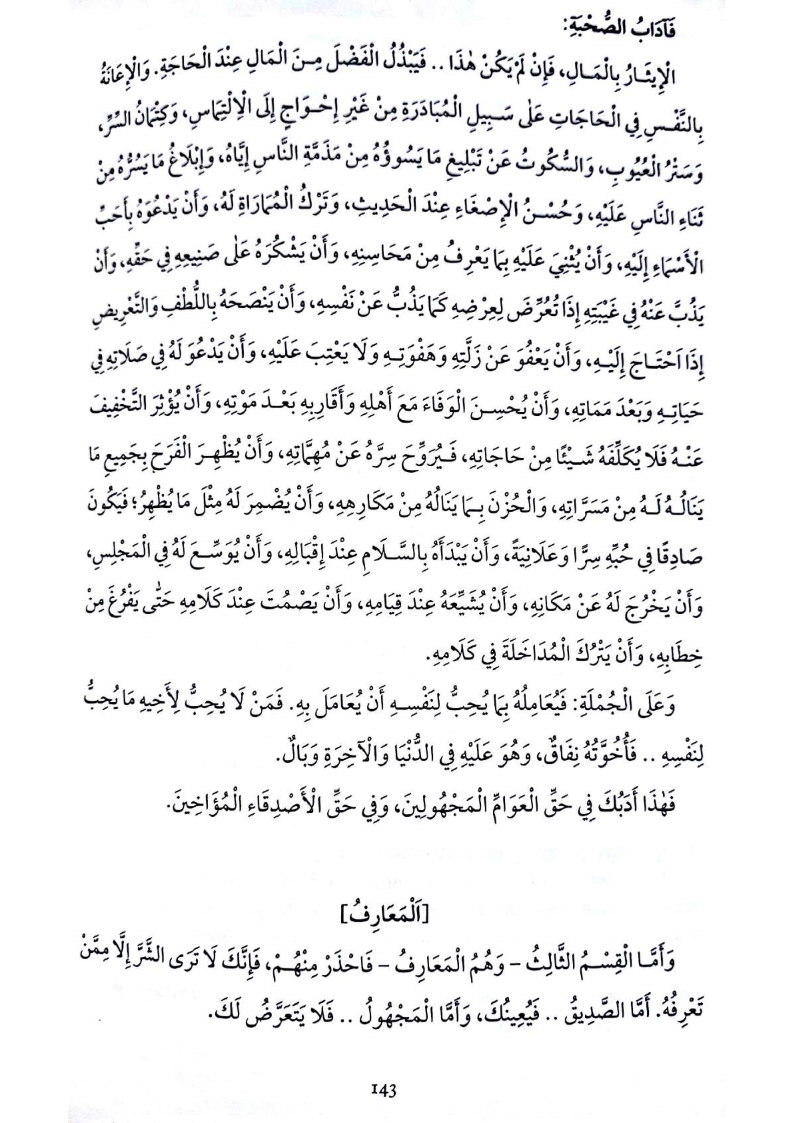 فَآدَابُ الصُّحْبَةِ:
الْإِيثَارُ بِالْمَالِ، فَإِنْ لَمْ يَكُنْ هٰذَا .. فَيَبْذُلُ الْفَضْلَ مِنَ الْمَالِ عِنْدَ الْحَاجَةِ. وَالْإِعَانَةُ
بِالنَّفْسِ فِي الْحَاجَاتِ عَلَى سَبِيلِ الْمُبَادَرَةِ مِنْ غَيْرِ إِحْوَاجٍ إِلَى الِالْتِمَاسِ، وَكِتْمَانُ السِّرِّ،
وَسَتْرُ الْعُيُوبِ، وَالسُّكُوتُ عَنْ تَبْلِيغِ مَا يَسُوؤُهُ مِنْ مَذَمَّةِ النَّاسِ إِيَّاهُ، وَإِبْلَاغُ مَا يَسُرُّهُ مِنْ
ثَنَاءِ النَّاسِ عَلَيْهِ، وَحُسْنُ الْإِصْغَاءِ عِنْدَ الْحَدِيثِ، وَتَرْكُ الْمُمَارَاةِ لَهُ، وَأَنْ يَدْعُوَهُ بِأَحَبِّ
الْأَسْمَاءِ إِلَيْهِ، وَأَنْ يُثْنِيَ عَلَيْهِ بِمَا يَعْرِفُ مِنْ مَحَاسِنِهِ، وَأَنْ يَشْكُرَهُ عَلَى صَنِيعِهِ فِي حَقِّهِ، وَأَنْ
يَذُبَّ عَنْهُ فِي غَيْبَتِهِ إِذَا تُعُرِّضَ لِعِرْضِهِ كَمَا يَذُبُّ عَنْ نَفْسِهِ، وَأَنْ يَنْصَحَهُ بِاللُّطْفِ وَالتَّعْرِيضِ
إِذَا احْتَاجَ إِلَيْهِ، وَأَنْ يَعْفُوَ عَنْ زَلَّتِهِ وَهَفْوَتِهِ وَلَا يَعْتِبَ عَلَيْهِ، وَأَنْ يَدْعُوَ لَهُ فِي صَلَاتِهِ فِي
حَيَاتِهِ وَبَعْدَ مَمَاتِهِ، وَأَنْ يُحْسِنَ الْوَفَاءَ مَعَ أَهْلِهِ وَأَقَارِبِهِ بَعْدَ مَوْتِهِ، وَأَنْ يُؤْثِرَ التَّخْفِيفَ
عَنْهُ فَلَا يُكَلِّفَهُ شَيْئًا مِنْ حَاجَاتِهِ، فَيُرَوِّحَ سِرَّهُ عَنْ مُهِمَّاتِهِ، وَأَنْ يُظْهِرَ الْفَرَحَ بِجَمِيعِ مَا
يَنَالُهُ لَهُ مِنْ مَسَرَّاتِهِ، وَالْحُزْنَ بِمَا يَنَالُهُ مِنْ مَكَارِهِهِ، وَأَنْ يُضْمِرَ لَهُ مِثْلَ مَا يُظْهِرُ؛ فَيَكُونَ
صَادِقًا فِي حُبِّهِ سِرًّا وَعَلَانِيَةً، وَأَنْ يَبْدَأَهُ بِالسَّلَامِ عِنْدَ إِقْبَالِهِ، وَأَنْ يُوَسِّعَ لَهُ فِي الْمَجْلِسِ،
وَأَنْ يَخْرُجَ لَهُ عَنْ مَكَانِهِ، وَأَنْ يُشَيِّعَهُ عِنْدَ قِيَامِهِ، وَأَنْ يَصْمُتَ عِنْدَ كَلَامِهِ حَتَّى يَفْرُغَ مِنْ
خِطَابِهِ، وَأَنْ يَتْرُكَ الْمُدَاخَلَةَ فِي كَلَامِهِ.
وَعَلَى الْجُمْلَةِ: فَيُعَامِلُهُ بِمَا يُحِبُّ لِنَفْسِهِ أَنْ يُعَامَلَ بِهِ. فَمَنْ لَا يُحِبُّ لِأَخِيهِ مَا يُحِبُّ
لِنَفْسِهِ .. فَأُخُوَّتُهُ نِفَاقٌ، وَهُوَ عَلَيْهِ فِي الدُّنْيَا وَالْآخِرَةِ وَبَالٌ.
فَهٰذَا أَدَبُكَ فِي حَقِّ الْعَوَامِّ الْمَجْهُولِينَ، وَفِي حَقِّ الْأَصْدِقَاءِ الْمُؤَاخِينَ.
[اَلْمَعَارِفُ]
وَأَمَّا الْقِسْمُ الثَّالِثُ – وَهُمُ الْمَعَارِفُ – فَاحْذَرْ مِنْهُمْ، فَإِنَّكَ لَا تَرَى الشَّرَّ إِلَّا مِمَّنْ
تَعْرِفُهُ. أَمَّا الصَّدِيقُ .. فَيُعِينُكَ، وَأَمَّا الْمَجْهُولُ .. فَلَا يَتَعَرَّضُ لَكَ.
143